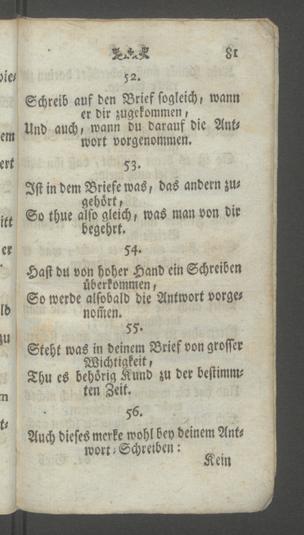 81
52.
Schreib auf den Brief sogleich, wann
er dir zugekommen,
Und auch, wann du darauf die Ant-
wort vorgenommen.
53.
Ist in dem Briefe was, das andern zu-
gehört,
So thue also gleich, was man von dir
begehrt.
54.
Hast du von hoher Hand ein Schreiben
überkommen,
So werde alsobald die Antwort vorge-
nom̃en.
55.
Steht was in deinem Brief von grosser
Wichtigkeit,
Thu es behörig Kund zu der bestimm-
ten Zeit.
56.
Auch dieses merke wohl bey deinem Ant-
wort-Schreiben:
Kein